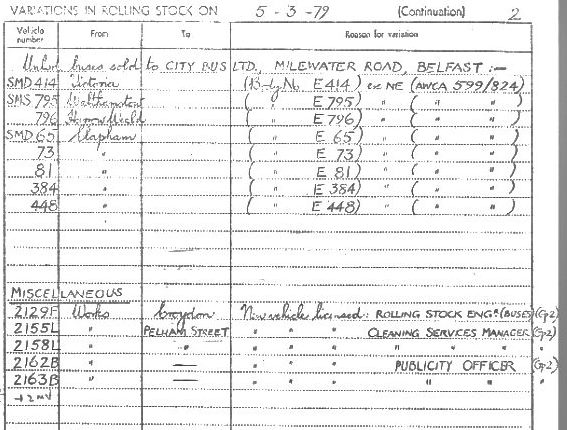 VARIATIONS IN ROLLING STOCK ON 5 - 3 - 79 (Continuation) 2
Vehicle number From To Reason for variation
buses sold to CITY BUS LTD., MILEWATER ROAD, BELFAST :—
SMD 414 Victoria (Bdy No E 414) ex NE (AWCA 599/824)
SMS 795 Walthamstow ( " E 795) " ( " " )
796 Harrow Weald ( " E 796) " ( " " )
SMD 65 Clapham ( " E 65) " ( " " )
73 " ( " E 73) " ( " " )
81 " ( " E 81) " ( " " )
384 " ( " E 384) " ( " " )
448 " ( " E 448) " ( " " )
MISCELLANEOUS
2129F Works Croydon New vehicle licensed: ROLLING STOCK ENGR (BUSES) (Gp2)
2155L " PELHAM STREET " " " CLEANING SERVICES MANAGER (Gp2)
2158L " " " " " " " "
2162B " — " " " PUBLICITY OFFICER (Gp2)
2163B " — " " " " " "